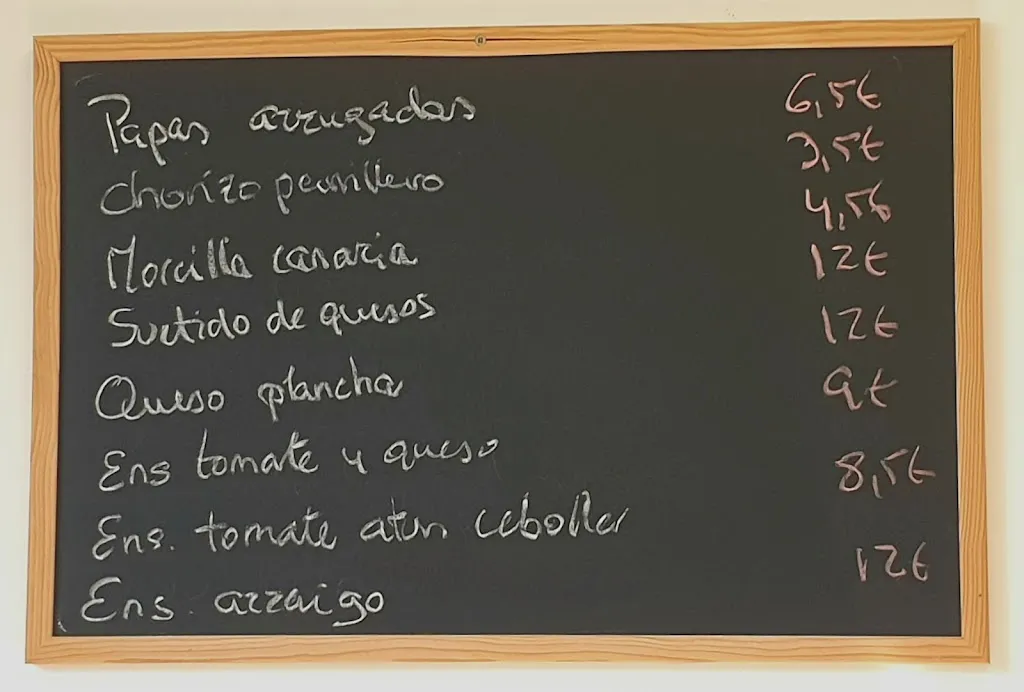 Papas arrugadas 6,5€
Chorizo perrillero 3,5€
Morcilla canaria 4,5€
Surtido de quesos 12€
Queso plancha 12€
Ens tomate y queso 9€
Ens. tomate atún cebolla 8,5€
Ens. arraigo 12€